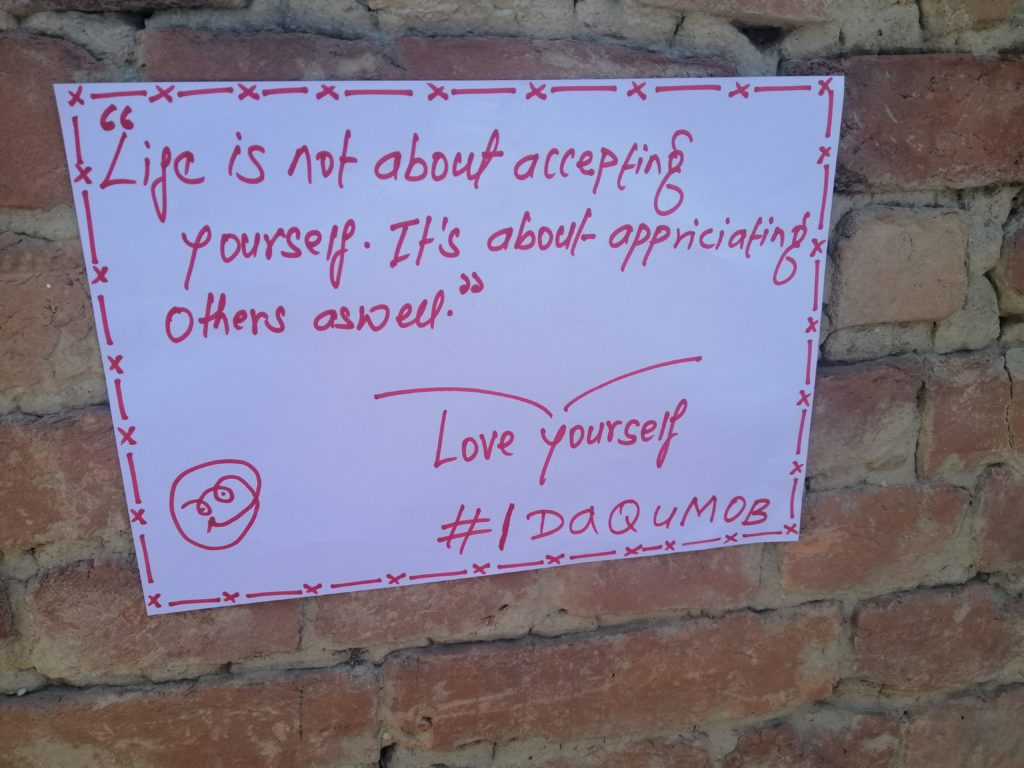 “Life is not about accepting
yourself. It's about appriciating
others aswell.”
Love yourself
#1DaQuMOB